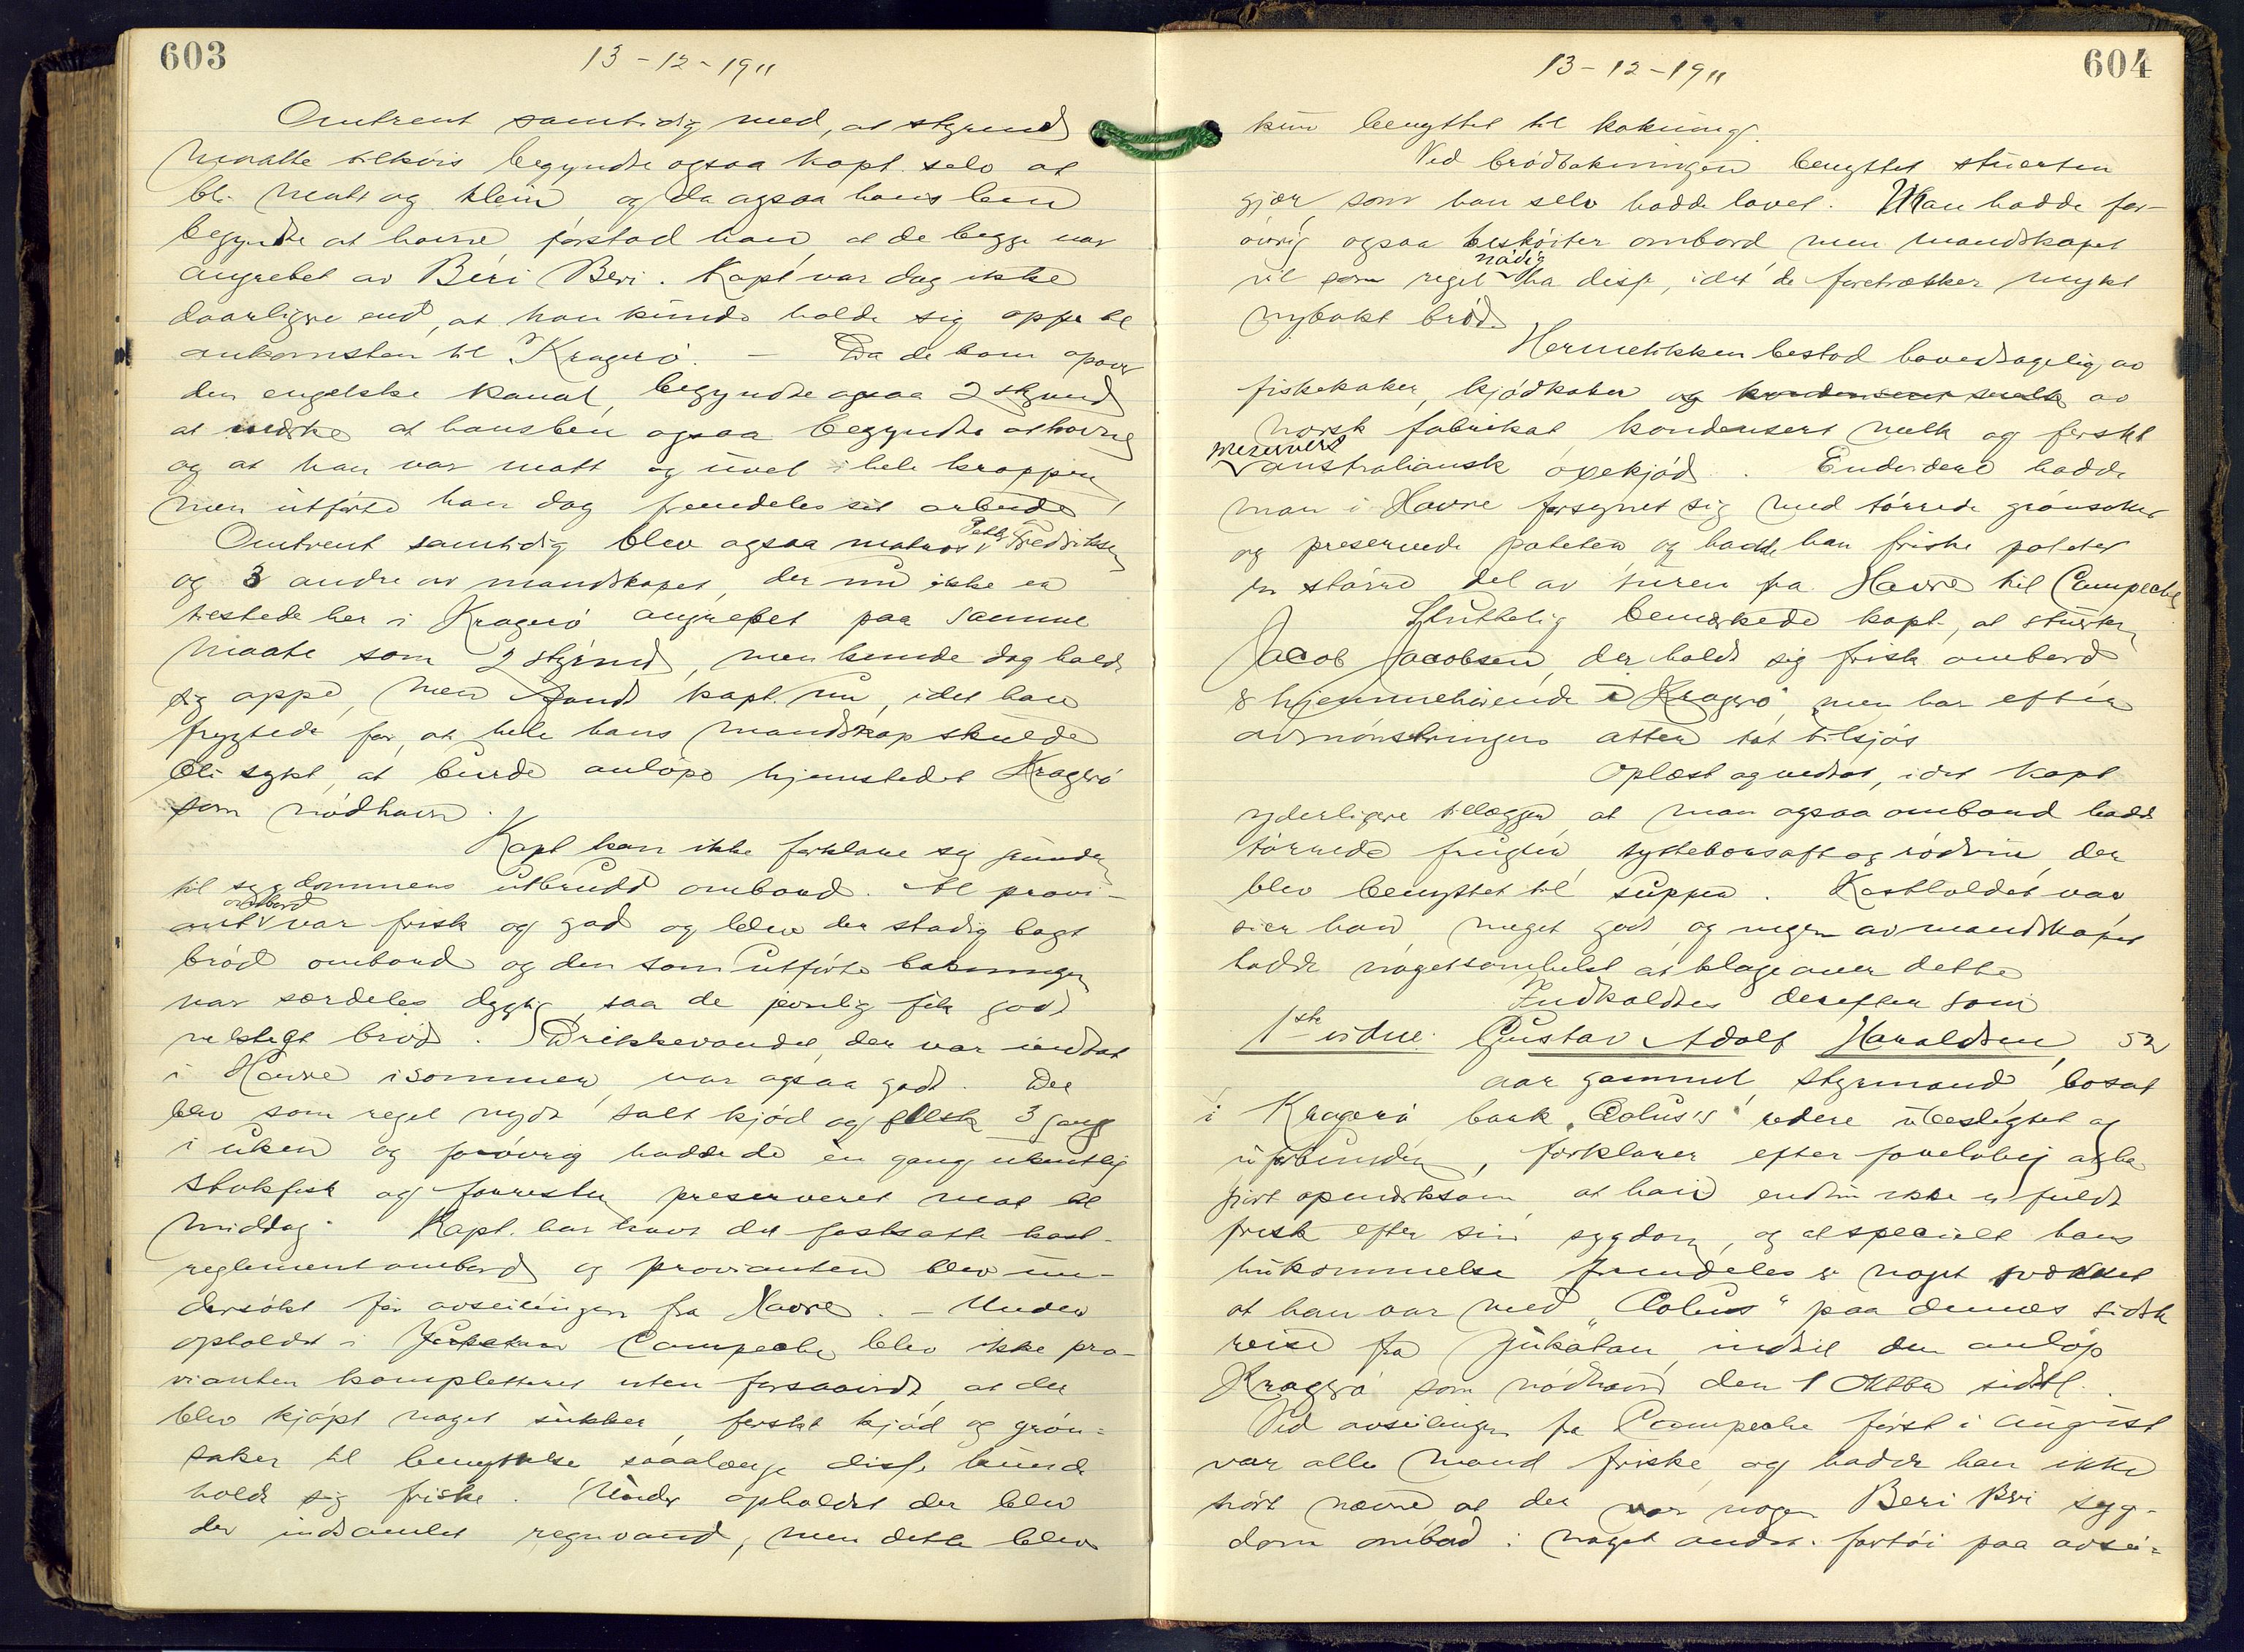 603
13-12-1911
Omtrent samtidig med, at styrmd
maatte tilkøis begyndte ogsaa kapt. selv at
bli matt og klein og da ogsaa hans ben
begyndte at hovne forstod han at de begge var
angrebet av Beri Beri. Kapt var dog ikke
daarligere end, at han kunde holde sig oppe til
ankomsten til Kragerø. — Da de kom opover
den engelske kanal, begyndte ogsaa 2 styrmd
at merke at hans ben ogsaa begyndte at hovne
og at han var matt og uvel i hele kroppen
men utførte han dog fremdeles sit arbeide.
Omtrent samtidig blev ogsaa matros Fredriksen
og 3 andre av mandskapet, der nu ikke er
tilstede her i Kragerø angrepet paa samme
maate som 2 styrmd, men kunde dog holde
sig oppe, men fandt kapt. nu, idet han
frygtede for, at hele hans mandskap skulde
bli sykt, at burde anløpe hjemstedet Kragerø
som nødhavn.
Kapt kan ikke forklare sig grunden
til sygdommens utbrudd ombord. Al provi-
ant ombord var frisk og god og blev der stadig bagt
brød ombord og den som utførte bakningen
var særdeles dygtig, saa de jevnlig fik godt
velstegt brød. Drikkevandet, der var indtat
i Havre isommer, var ogsaa godt. Der
blev som regel nydt salt kjød og flesk 3 gang
i uken og forøvrig hadde de en gang ukentlig
stokfisk og forresten preserveret mat til
middag. Kapt. har havt det fastsatte kost-
reglement ombord og provianten blev un-
dersøkt før avseilingen fra Havre. — Under
opholdet i Campeche blev ikke pro-
vianten komplettert uten forsaavidt, at der
blev kjøpt noget sukker, ferskt kjød og grøn-
saker til benyttelse saalænge disse kunde
holde sig friske. Under opholdet der blev
der indsamlet regnvand, men dette blev
604
13-12-1911
kun benyttet til kokning.
Ved brødbakningen benyttet stuerten
gjær, som han selv hadde lavet. Man hadde for-
øvrig ogsaa beskøiter ombord men mandskapet
vil som regel nødig ha disse, idet de foretrækker mykt
nybakt brød.
Hermetikken bestod hovedsagelig av
fiskekaker, kjødkaker og kondensert melk av
norsk fabrikat kondensert melk og ferskt
preservert australiansk oxekjød. Endvidere hadde
man i Havre forsynet sig med tørrede grønsaker
og preservede poteter og hadde han friske poteter
en større del av turen fra Havre til Campeche
Sluttelig bemerkede kapt., at stuerten
Jacob Jacobsen, der holdt sig frisk ombord
er hjemmehørende i Kragerø, men har efter
avmønstringen atter tat tilsjøs
Oplæst og vedtat, idet kapt
yderligere tillægger at man ogsaa ombord hadde
tørrede frugter, tyttebærsaft og rødvin, der
blev benyttet til supper. Kostholdet var
sier han meget godt og ingen av mandskapet
hadde nogetsomhelst at klage over dette
Indkaldtes derefter som
1ste vidne: Gustav Adolf Haraldsen, 52
aar gammel, styrmand, bosat
i Kragerø bark "Æolus's" redere ubeslegtet og
uforbunden, forklarer efter foreløbig at ha
gjort opmerksom, at han endnu ikke er fuldt
frisk efter sin sygdom, og at specielt hans
hukommelse fremdeles er noget svækket
at han var med "Æolus" paa dennes sidste
reise fra Jukatan indtil den anløp
Kragerø som nødhavn den 1 Oktbr sidstl.
Ved avseilingen fra Campeche først i august
var alle mand friske og hadde han ikke
hørt nævne at der var nogen Beri Beri syg-
dom ombord i noget andet fartøi paa avsei-